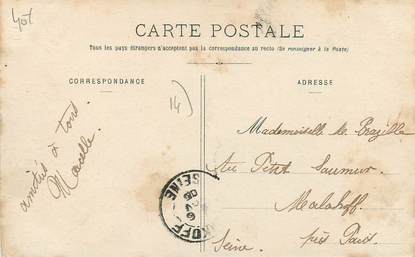 40t
CARTE POSTALE
Tous les pays étrangers n'acceptent pas la correspondance au recto (Se renseigner à la Poste)
CORRESPONDANCE
ADRESSE
14)
amitié à tous
Marcelle.
Mademoiselle de
Au Petit Saumur
Malakoff
Seine. près Paris
KOFF
SEINE